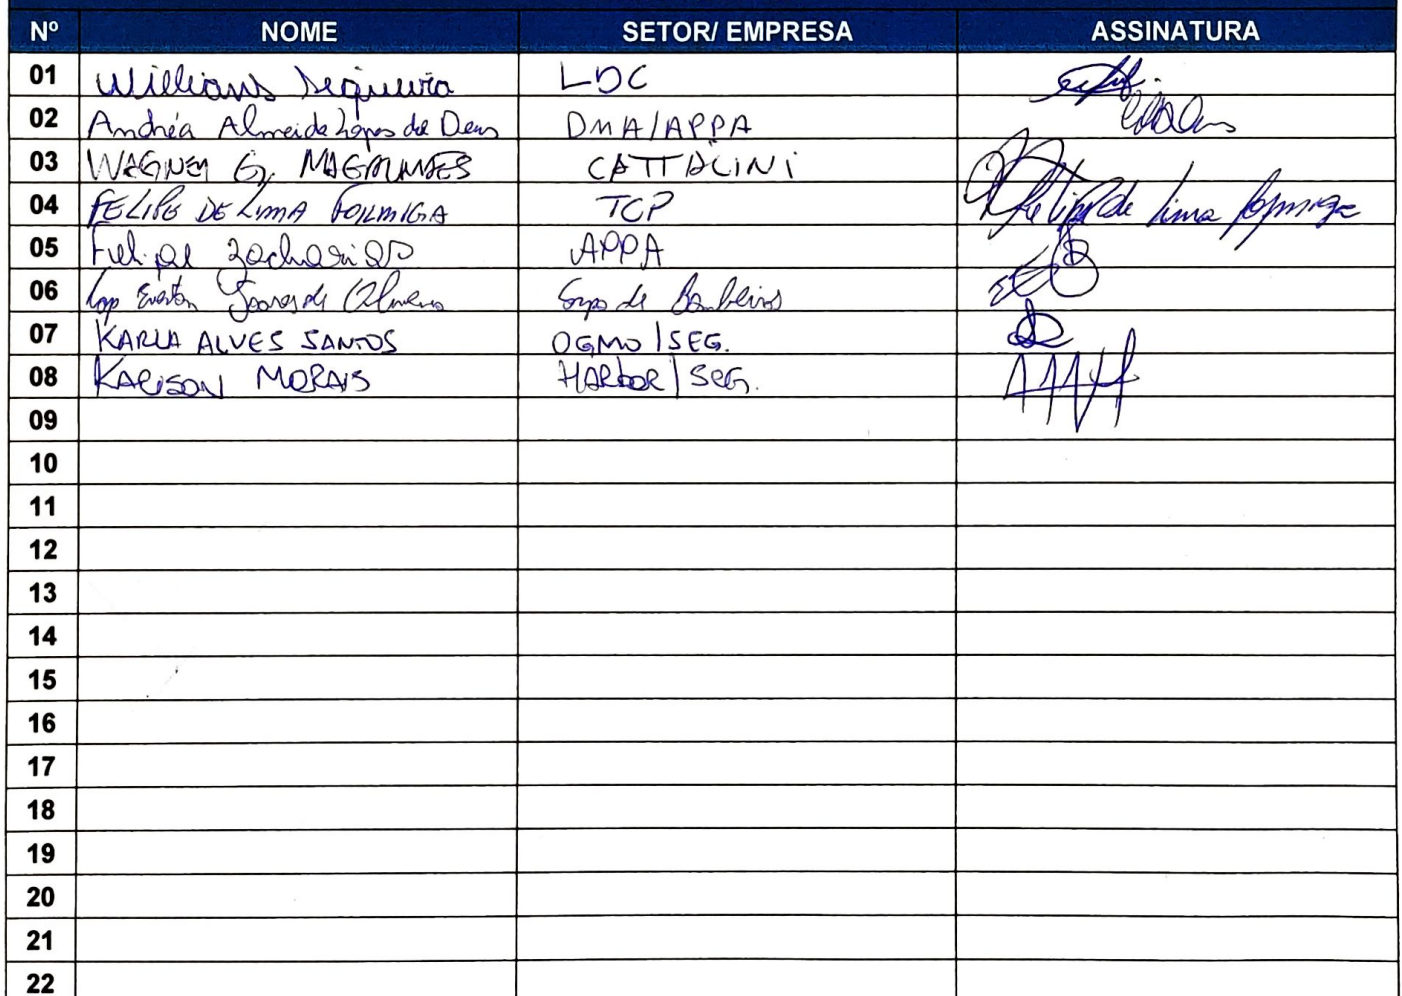 Nº NOME SETOR/ EMPRESA ASSINATURA
01 Willians Siqueira LDC
02 Andréa Almeida Lopes de Deus DMA/APPA
03 WAGNER G. MAGALHÃES CATTALINI
04 FELIPE DE LIMA FORMIGA TCP Felipe de Lima Formiga
05 Felipe Zacharias APPA
06 Cap Everton Soares de Oliveira Corpo de Bombeiros
07 KARLA ALVES SANTOS OGMO | SEG.
08 KARISON MORAIS HARBOR | SEG.
09
10
11
12
13
14
15
16
17
18
19
20
21
22